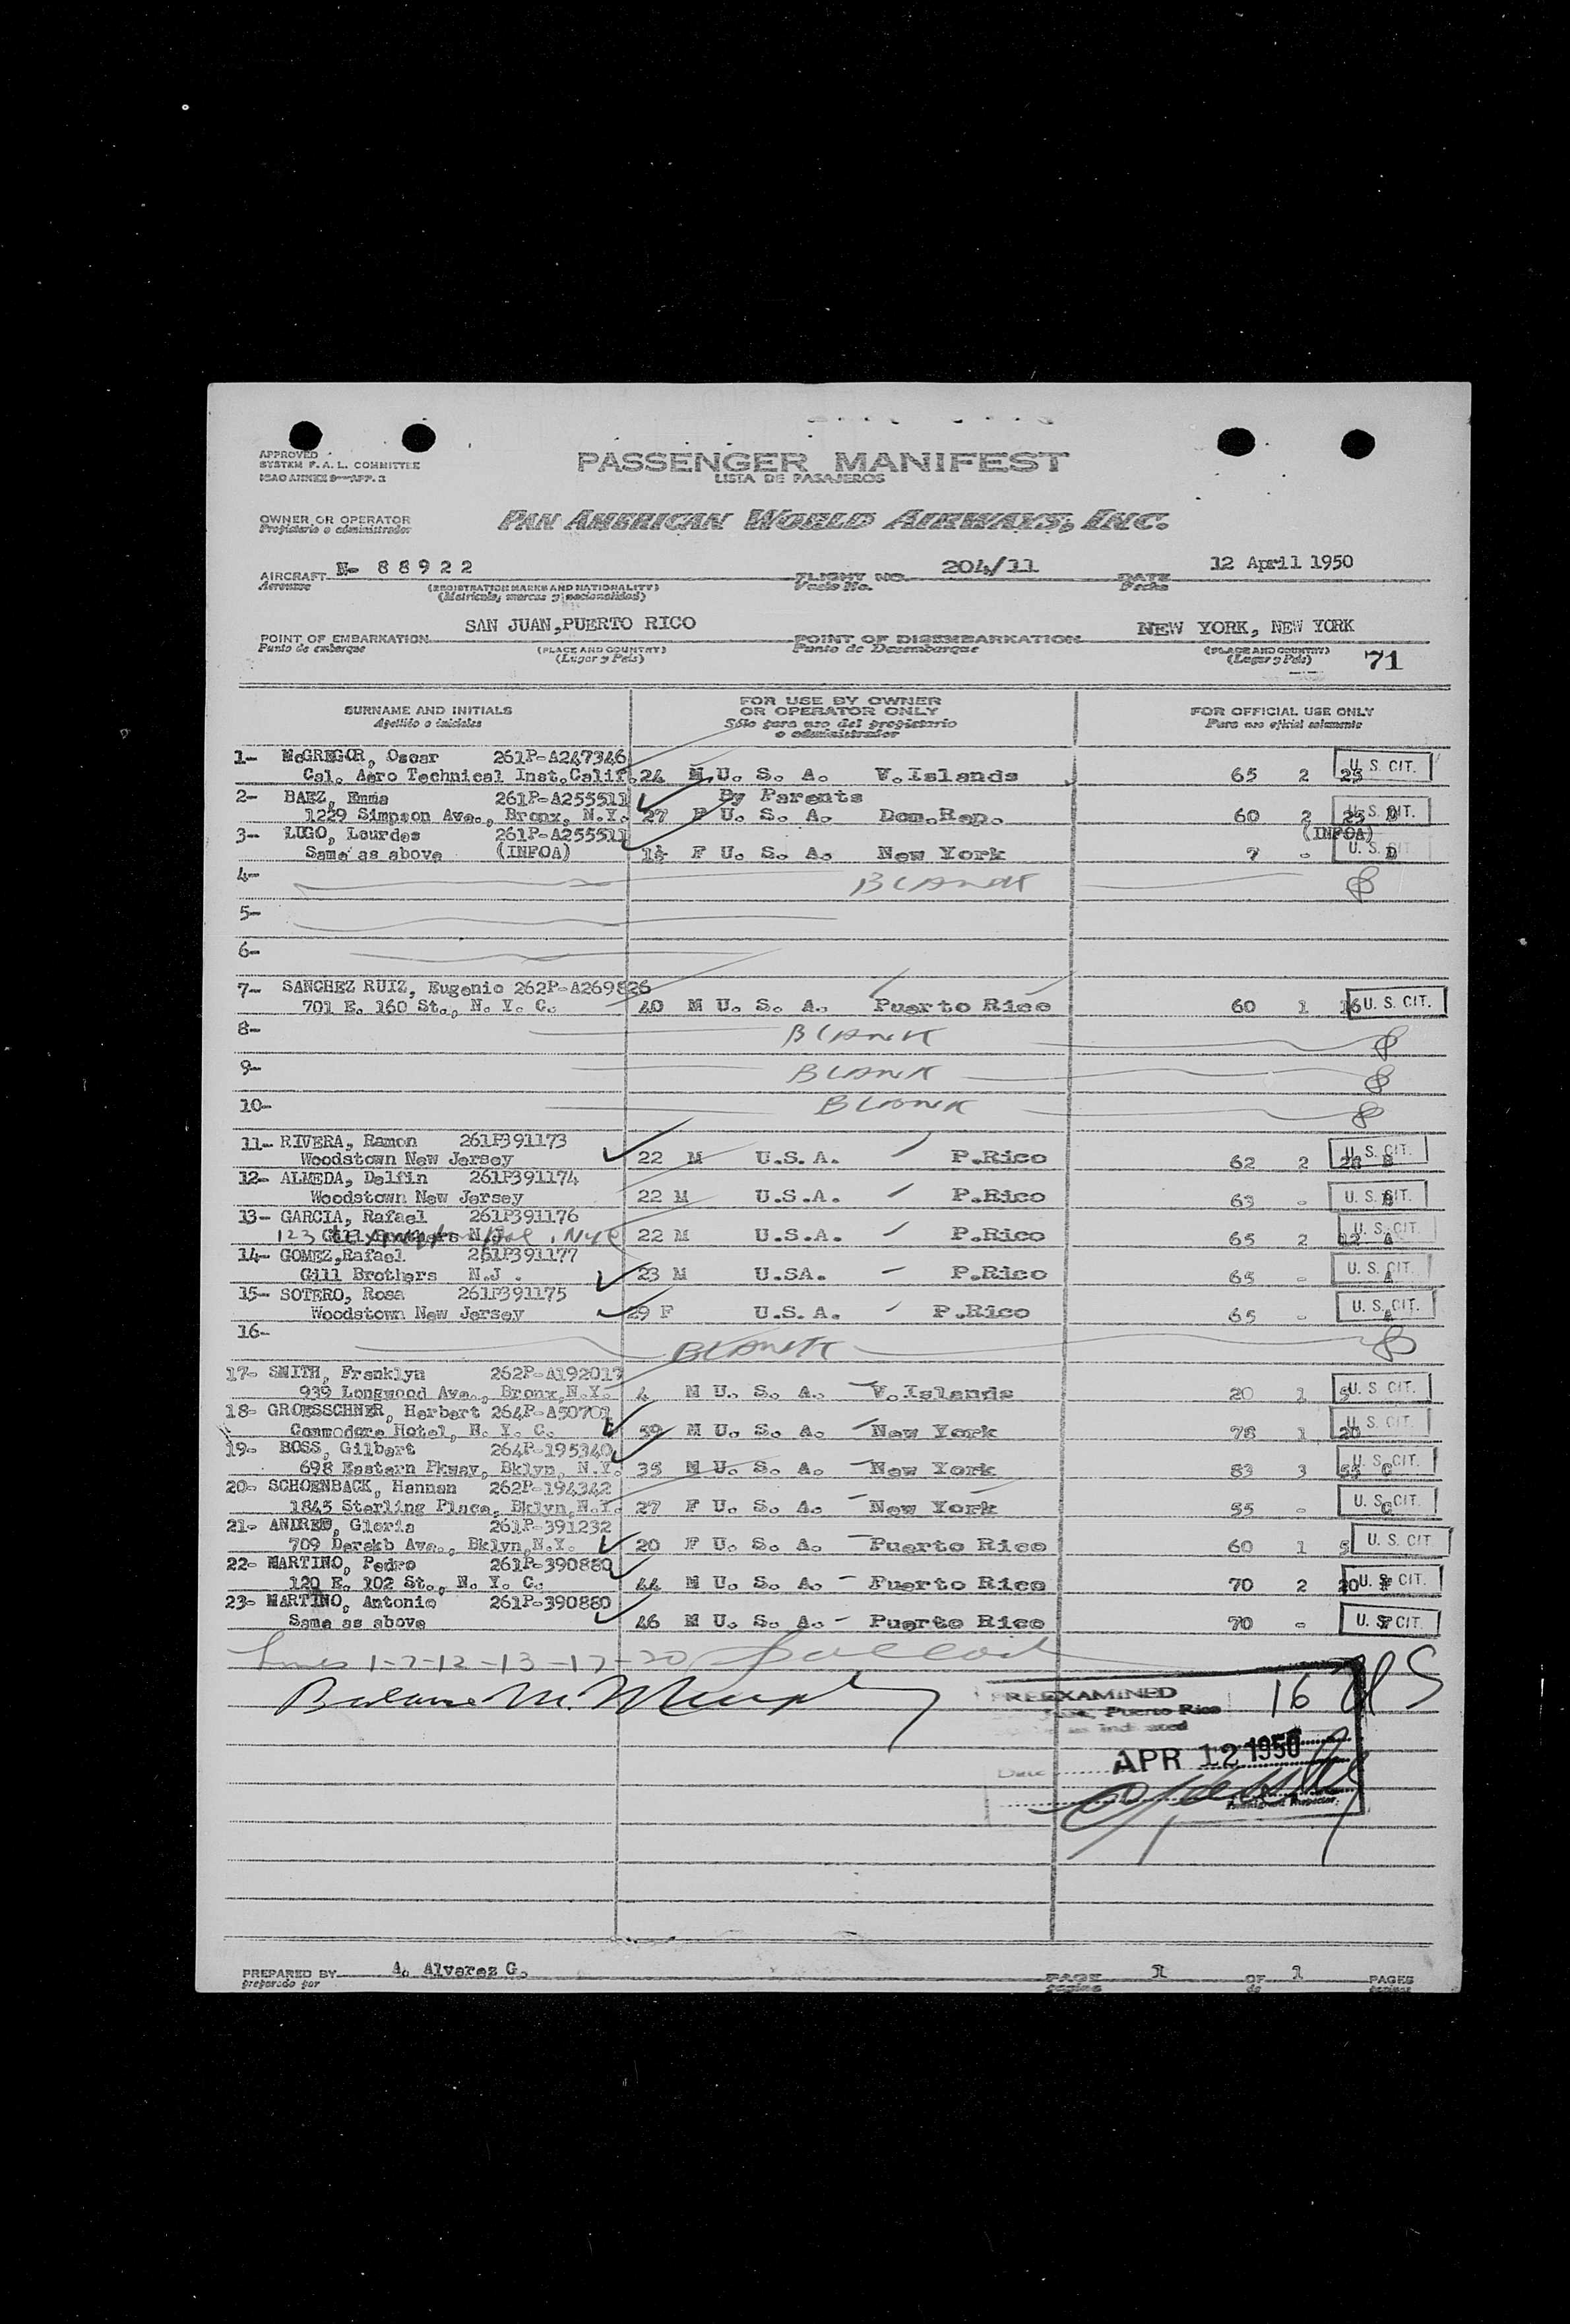 APPROVED
SYSTEM F. A. L. COMMITTEE
ICAO ANNEX 9—APP. 3
PASSENGER MANIFEST
LISTA DE PASAJEROS
OWNER OR OPERATOR
Propietario o administrador
PAN AMERICAN WORLD AIRWAYS, INC.
AIRCRAFT N- 88922 FLIGHT NO. 204/11 DATE 12 April 1950
Aeronave (REGISTRATION MARKS AND NATIONALITY) Vuelo No. Fecha
(Matricula, marcas y nacionalidad)
POINT OF EMBARKATION SAN JUAN, PUERTO RICO POINT OF DISEMBARKATION NEW YORK, NEW YORK
Punto de embarque (PLACE AND COUNTRY) Punto de Desembarque (PLACE AND COUNTRY)
(Lugar y Pais) (Lugar y Pais) 71
SURNAME AND INITIALS FOR USE BY OWNER OR OPERATOR ONLY FOR OFFICIAL USE ONLY
Apellido o iniciales Sólo para uso del propietario o administrador Para uso oficial solamente
1- McGREGOR, Oscar 261P-A247346
Cal. Aero Technical Inst.Calif. 24 M U. S. A. V.Islands 65 2 25 U. S. CIT.
2- BAEZ, Emma 261P-A255511 By Parents
1229 Simpson Ave., Bronx, N.Y. 27 F U. S. A. Dom.Rep. 60 2 25 D U. S. CIT.
3- LUGO, Lourdes 261P-A255511 (INFOA)
Same as above (INFOA) 1½ F U. S. A. New York 7 - D U. S. CIT.
4- BLANK
5-
6-
7- SANCHEZ RUIZ, Eugenio 262P-A269826
701 E. 160 St., N. Y. C. 40 M U. S. A. Puerto Rico 60 1 16 U. S. CIT.
8- BLANK
9- BLANK
10- BLANK
11- RIVERA, Ramon 261P391173
Woodstown New Jersey 22 M U.S.A. P.Rico 62 2 28 B U. S. CIT.
12- ALMEDA, Delfin 261P391174
Woodstown New Jersey 22 M U.S.A. P.Rico 63 - B U. S. CIT.
13- GARCIA, Rafael 261P391176
123 22 M U.S.A. P.Rico 65 2 12 A U. S. CIT.
14- GOMEZ,Rafael 261P391177
Gill Brothers N.J . 23 M U.SA. P.Rico 65 - A U. S. CIT.
15- SOTERO, Rosa 261P391175
Woodstown New Jersey 29 F U.S.A. P.Rico 65 - A U. S. CIT.
16- BLANK
17- SMITH, Franklyn 262P-A192017
939 Longwood Ave., Bronx,N.Y. 4 M U. S. A. V.Islands 20 1 5 U. S. CIT.
18- GROESSCHNER, Herbert 264P-A50701
Commodore Hotel, N. Y. C. 59 M U. S. A. New York 78 1 20 U. S. CIT.
19- BOSS, Gilbert 264P-195340
698 Eastern Pkway, Bklyn, N.Y. 35 M U. S. A. New York 83 3 55 C U. S. CIT.
20- SCHOENBACK, Hannan 262P-194342
1845 Sterling Place, Bklyn,N.Y. 27 F U. S. A. New York 55 - C U. S. CIT.
21- ANDREU, Gloria 261P-391232
709 Dekalb Ave., Bklyn,N.Y. 20 F U. S. A. Puerto Rico 60 1 5 U. S. CIT.
22- MARTINO, Pedro 261P-390880
120 E. 102 St., N. Y. C. 44 M U. S. A. - Puerto Rico 70 2 20 F U. S. CIT.
23- MARTINO, Antonio 261P-390880
Same as above 46 M U. S. A. - Puerto Rico 70 - F U. S. CIT.
Lines 1-7-12-13-17-20
PREEXAMINED 16 US
Puerto Rico
as indicated
Date APR 12 1950
Immigrant Inspector
PREPARED BY A. Alvarez G. PAGE 1 OF 1 PAGES
preparado por pagina de paginas